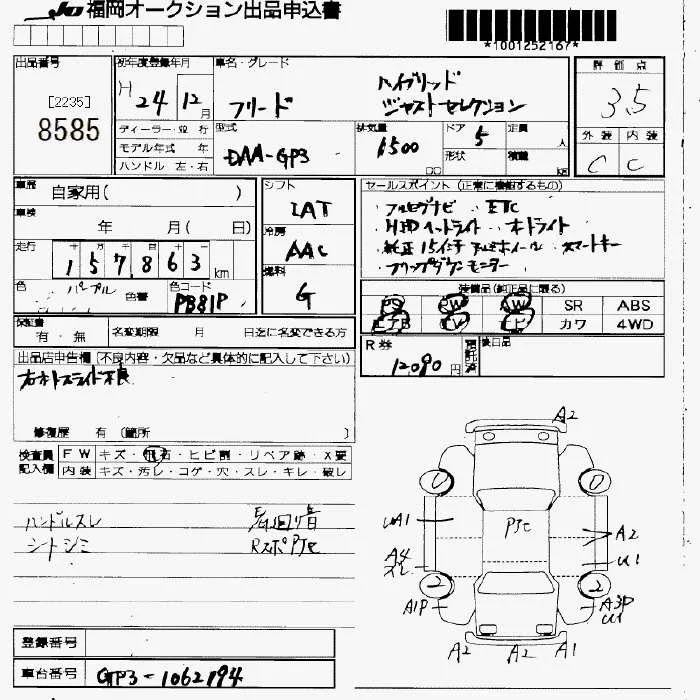 JU福岡オークション出品申込書
*1001252167*
出品番号
[2235]
8585
初年度登録年月
H 24 12 月
車名・グレード
フリード
ハイブリッド
ジャストセレクション
評価点
3.5
外装 内装
C C
ディーラー・並行
モデル年式 年
ハンドル 左・右
型式
DAA-GP3
排気量
1500
ドア 5
定員 人
形状
積載
車歴 自家用( )
車検 年 月( 日)
走行 157,863 km
色 パープル 色替
色コード PB81P
シフト
IAT
冷房
AAC
燃料
G
セールスポイント (正常に機能するもの)
・フルセグナビ ・ETC
・HIDヘッドライト ・オートライト
・純正15インチアルミホイール ・スマートキー
・フリップダウンモニター
装備品(純正品に限る)
PS PW AW SR ABS
エアB TV ナビ カワ 4WD
R券
12,090 円
預託済
後日品
保証書 有・無
名変期限 月 日迄に名変できる方
出品店申告欄 (不良内容・欠品など具体的に記入して下さい)
右オートスライド不良
修復歴 有 (箇所 )
検査員記入欄
FW キズ・飛石・ヒビ割・リペア跡・X要
内装 キズ・汚レ・コゲ・穴・スレ・キレ・破レ
ハンドルスレ
シートシミ
RスポPテc
A2
UA1
Pテc
A2
A4
スレ
U1
A1P
2
2
A3P
U1
A2 A2 A1
登録番号
車台番号 GP3-1062194